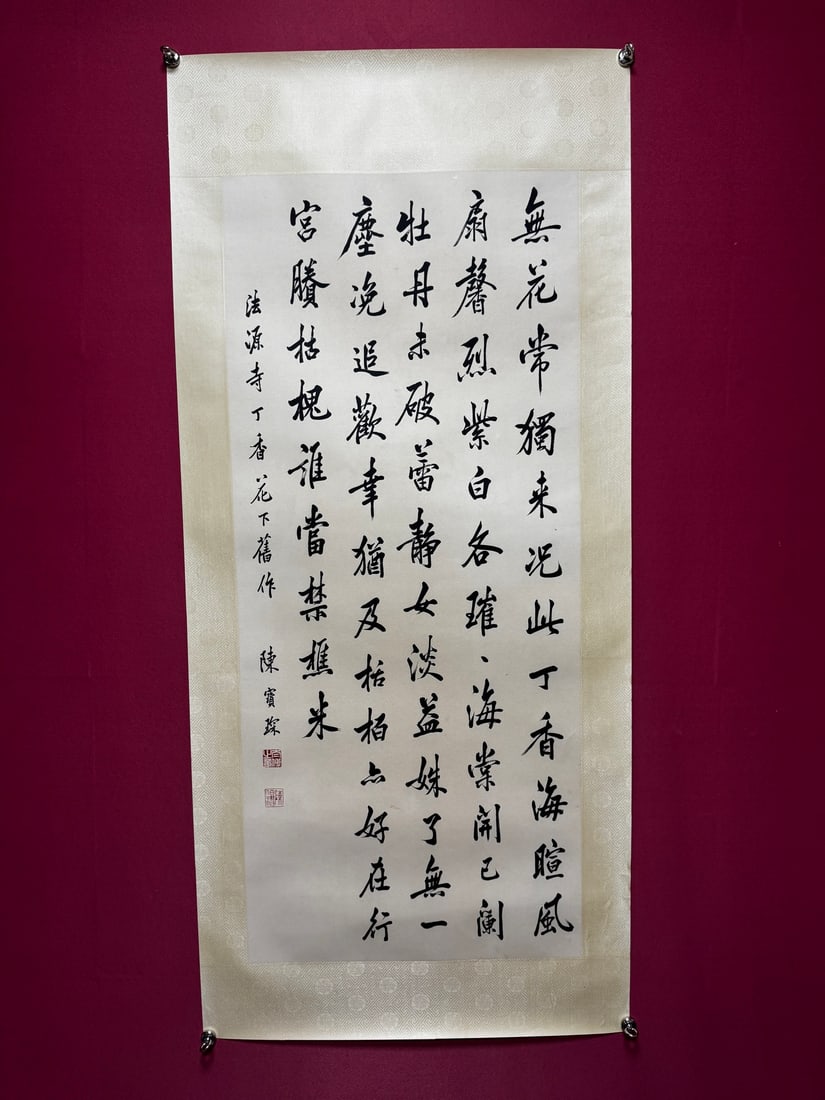 無花常獨来况此丁香海暄風
扇馨烈紫白各璀、海棠開已闌
牡丹未破蕾静女淡益姝了無一
塵浼追歡幸猶及栝栢亦好在行
宮賸枯槐誰當禁樵采
法源寺丁香花下舊作 陳寶琛